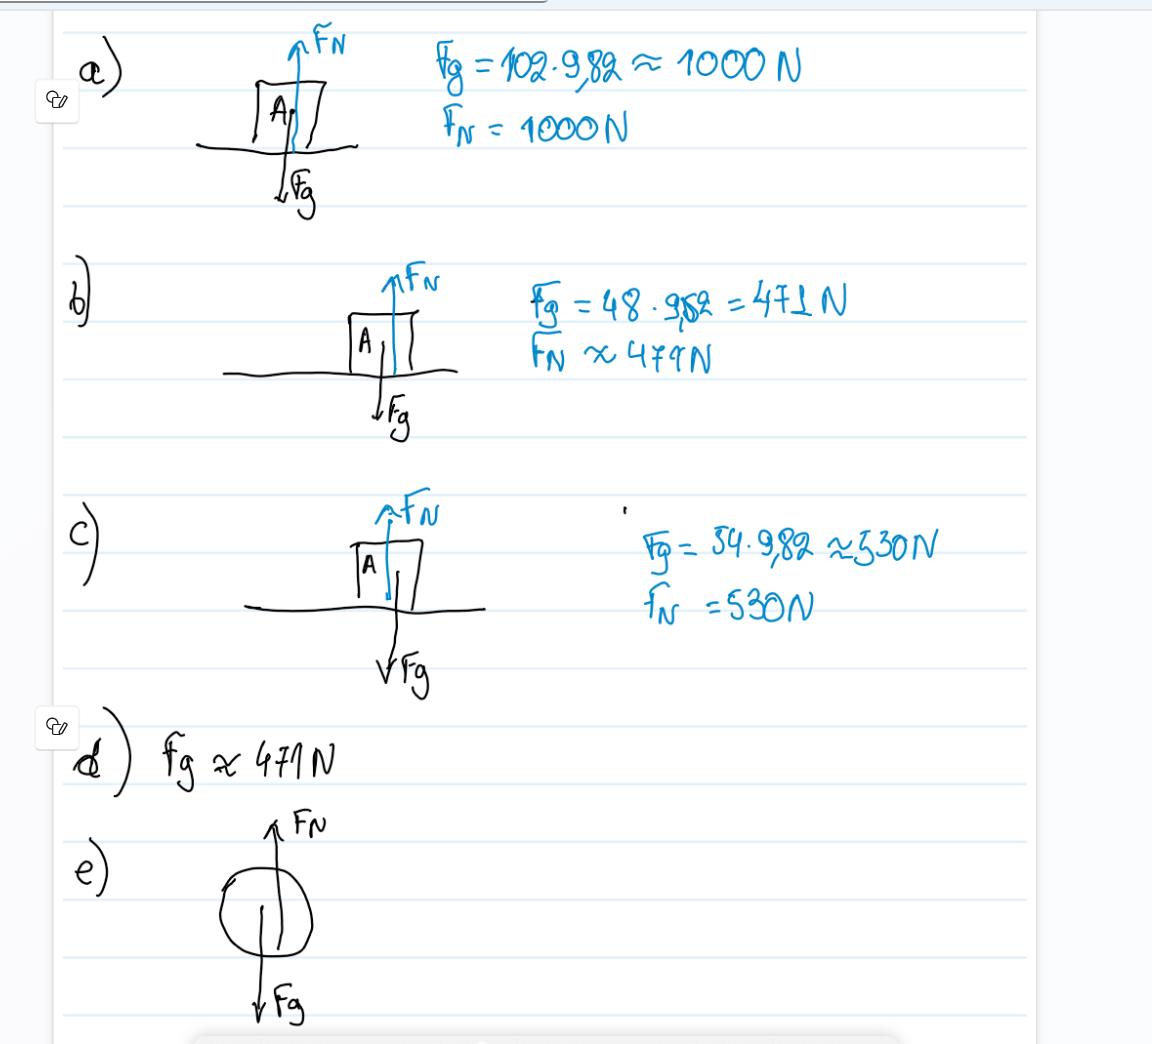 a)
FN
A
Fg
Fg = 102·9,82 ≈ 1000 N
FN = 1000 N
b)
FN
A
Fg
Fg = 48·9,82 = 471 N
FN ≈ 471 N
c)
FN
A
Fg
Fg = 54·9,82 ≈ 530 N
FN = 530 N
d) Fg ≈ 471 N
e)
FN
Fg